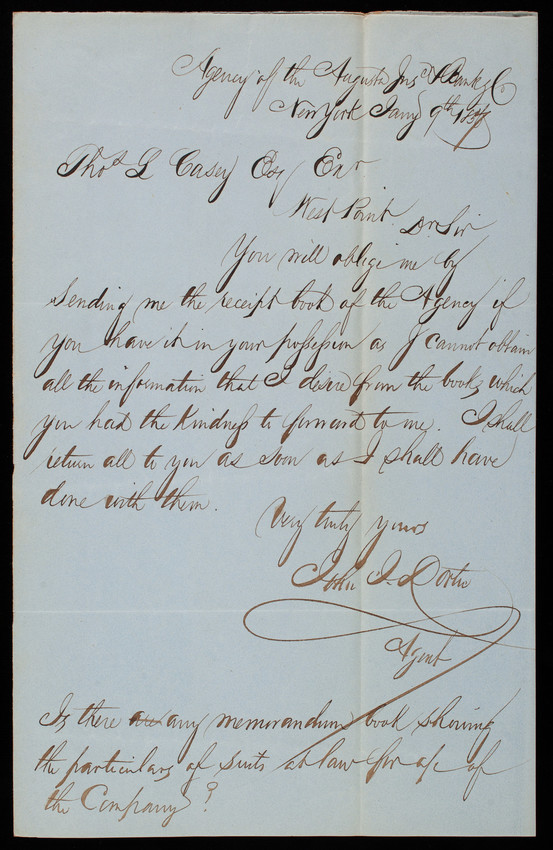 Agency of the Augusta Insce & Bankg Co
New York Jany 9th 1857
Thos L Casey Esq Exr
West Point.
Dr Sir
You will oblige me by
sending me the receipt book of the Agency if
you have it in your possession as I cannot obtain
all the information that I desire from the books which
you had the kindness to forward to me. I shall
return all to you as soon as I shall have
done with them.
Very truly yours
John J. Dortic
Agent
Is there are any memorandum book showing
the particulars of suits at law for a/c of
the Company?